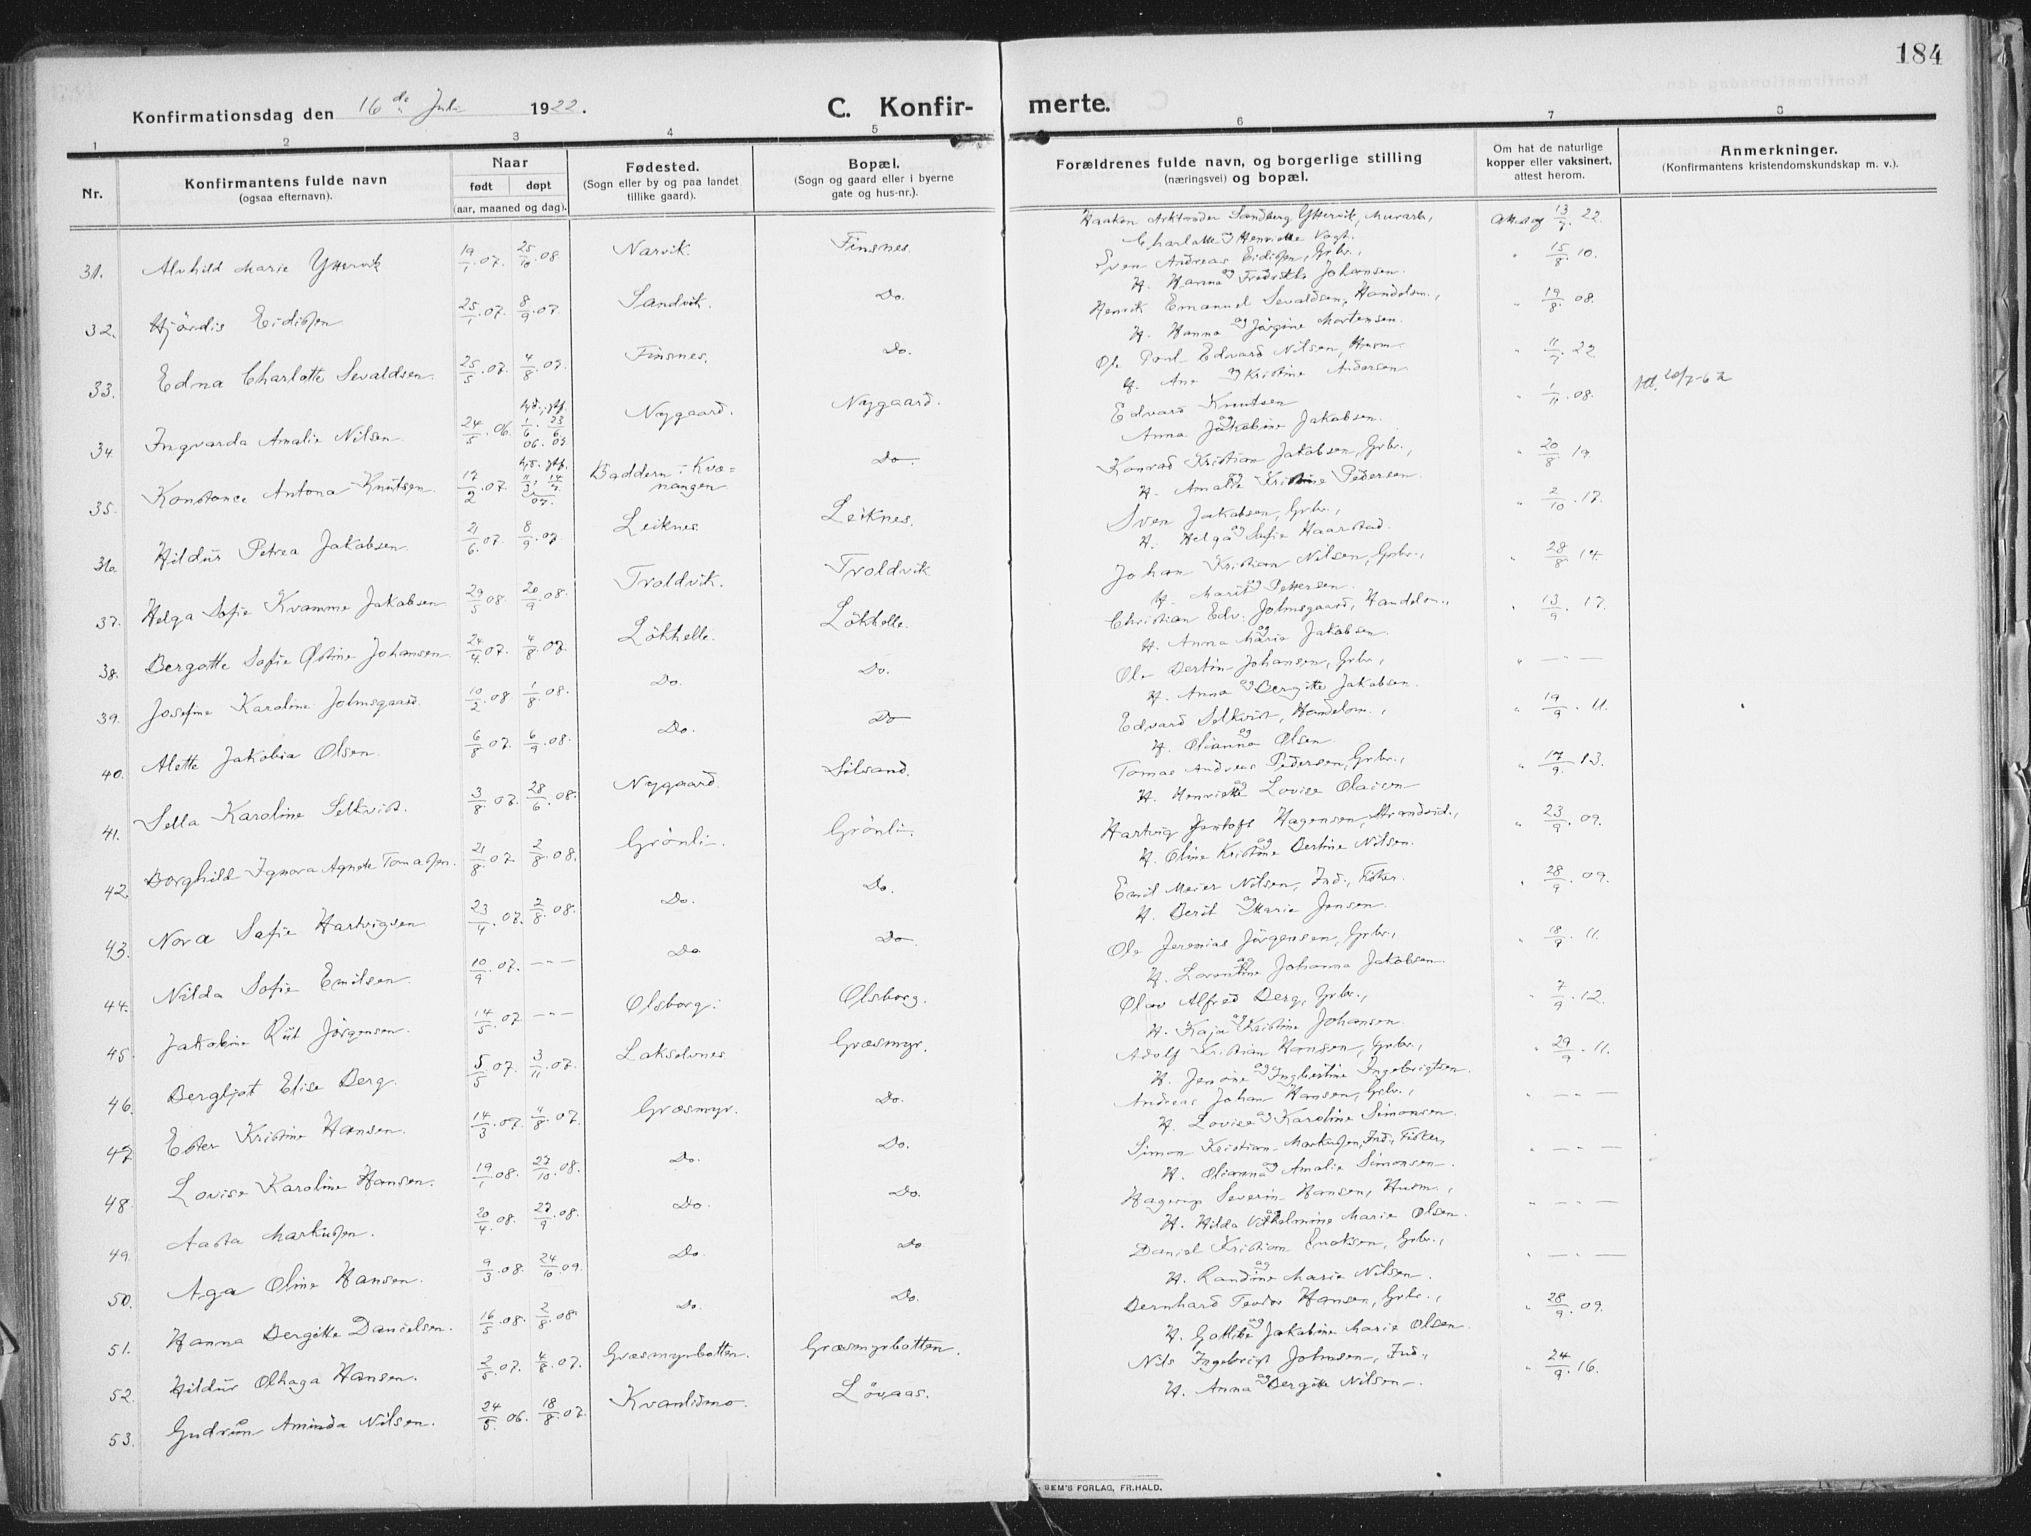 184
Konfirmationsdag den 16de Juli 1922.
C. Konfirmerte.
1 2 3 4 5 6 7 8
Nr.
Konfirmantens fulde navn
(ogsaa efternavn).
Naar
født døpt
(aar, maaned og dag).
Fødested.
(Sogn eller by og paa landet
tillike gaard).
Bopæl.
(Sogn og gaard eller i byerne
gate og hus-nr.).
Forældrenes fulde navn, og borgerlige stilling
(næringsvei) og bopæl.
Om hat de naturlige
kopper eller vaksinert,
attest herom.
Anmerkninger.
(Konfirmantens kristendomskundskap m. v.).
31. Alvhild Marie Yttervik 19/1.07. 25/10.08 Narvik. Finsnes. Haakon Sandberg Yttervik, Murarb., 13/7.22.
Charlotte og Henriette Vogt.
32. Hjördis Eidissen 25/1.07. 8/9.07. Sandvik. Do. Sven Andreas Eidissen, Grbr., " 15/8.10.
H. Hanna og Fredrikke Johansen.
33. Edna Charlotte Sevaldsen. 25/5.07. 4/8.07. Finsnes. Do. Henrik Emanuel Sevaldsen, Handelsm., " 19/8.08.
H. Hanna og Jörgine Mortensen.
34 Ingvarda Amalie Nilsen. 24/5.06. hjd. 1/6.06. stf. 23/6.07 Nygaard. Nygaard. Ole Edvard Nilsen, Husm. " 11/7.22
H. Ane og Kristine Andersen
35. Konstance Antona Knutsen. 17/2.07. hjd. 11/3. stf. 14/7.07. Baddern i Kvæ=
nangen Do. Edvard Knutsen " 1/11.08.
Anna og Jakobine Jakobsen.
36. Hildur Petrea Jakobsen. 21/6.07. 8/9.07 Leiknes. Leiknes. Konrad Kristian Jakobsen, Grbr., " 20/8.19.
H. Amalie og Kristine Pedersen.
37. Helga Sofie Kvamme Jakobsen 29/5.08. 20/9.08. Troldvik. Troldvik Sven Jakobsen, Grbr., " 2/10.17.
H. Helga og Sofie Haarstad.
38. Bergotte Sofie Østine Johansen. 24/4.07. 4/8.07 Lökhelle. Lökhelle. Johan Kristian Nilsen, Grbr., " 28/8.14
H. Marit og Pettersen.
39. Josefine Karoline Johnsgaard. 10/2.08 1/8.08. Do. Do. Christian Edv. Johnsgaard, Handelsm., " 13/9.17.
H. Anna og Marie Jakobsen.
40. Alette Jakobia Olsen. 6/8.07. 6/9.08. Do. Do Ole Bertin Johansen, Grbr., " — " —
H. Anna og Bergitte Jakobsen.
41. Sella Karoline Selkvist. 3/8.07. 28/6.08. Nygaard. Silsand. Edvard Selkvist, Handelsm., " 19/9.11.
H. Olianna og Olsen.
42. Borghild Ignora Agnete Tomassen. 21/8.07. 2/8.08. Grönli. Grönli. Tomas Andreas Pedersen, Grbr., " 17/9.13.
H. Henriette og Lovise Olaisen
43. Nora Sofie Hartvigsen 23/4.07. 2/8.08. Do. Do. Hartvig Jentoft Hagensen, Strandsid., " 23/9.09.
H. Oline Kristine og Bertine Nilsen.
44. Nilda Sofie Emilsen. 10/9.07. — " — Do Do Emil Meier Nilsen, Ind., Fisker. " 28/9.09.
H. Berit og Marie Jensen.
45. Jakobine Rut Jörgensen. 14/5.07 — " — Olsborg. Olsborg. Ole Jeremias Jörgensen, Grbr., " 18/9.11.
H. Lorentine og Johanna Jakobsen.
46. Bergljot Elise Berg. 5/5.07. 3/11.07. Lakselvnes Græsmyr. Olav Alfred Berg, Grbr., " 7/9.12.
H. Kaja og Kristine Johansen.
47 Ester Kristine Hansen. 14/3.07. 4/8.07. Græsmyr. Do. Adolf Kristian Hansen, Grbr., " 29/9.11.
H. Jensine og Ingbertine Ingebrigtsen.
48. Lovise Karoline Hansen. 19/1.08. 27/10.08. Do. Do. Andreas Johan Hansen, Grbr., " — " —
H. Lovise og Karoline Simonsen.
49. Aasta Markussen. 20/4.08. 27/9.08. Do. Do. Simon Kristian Markussen, Ind., Fisker, " — " —
H. Olianna og Amalie Simonsen.
50. Aga Oline Hansen. 9/3.08. 24/10.09. Do. Do Hagerup Severin Hansen, Husm., " — " —
H. Hilda og Vilhelmine Marie Olsen.
51. Hanna Bergitte Danielsen. 16/5.08. 2/8.08. Do. Do. Daniel Kristian Enoksen, Grbr., " — " —
H. Randine og Marie Nilsen.
52. Hildur Olhaga Hansen. 2/5.07. 4/8.07. Græsmyrbotten. Græsmyrbotten. Bernhard Teodor Hansen, Grbr., " 28/9.09.
H. Gotlibe og Jakobine Marie Olsen.
53. Gudrun Aminda Nilsen. 24/5.06. 18/8.07. Kvanlidmo. Lövaas. Nils Ingebrigt Johnsen, Ind., " 24/9.16.
H. Anna og Bergitte Nilsen.
SEM'S FORLAG, FR.HALD.